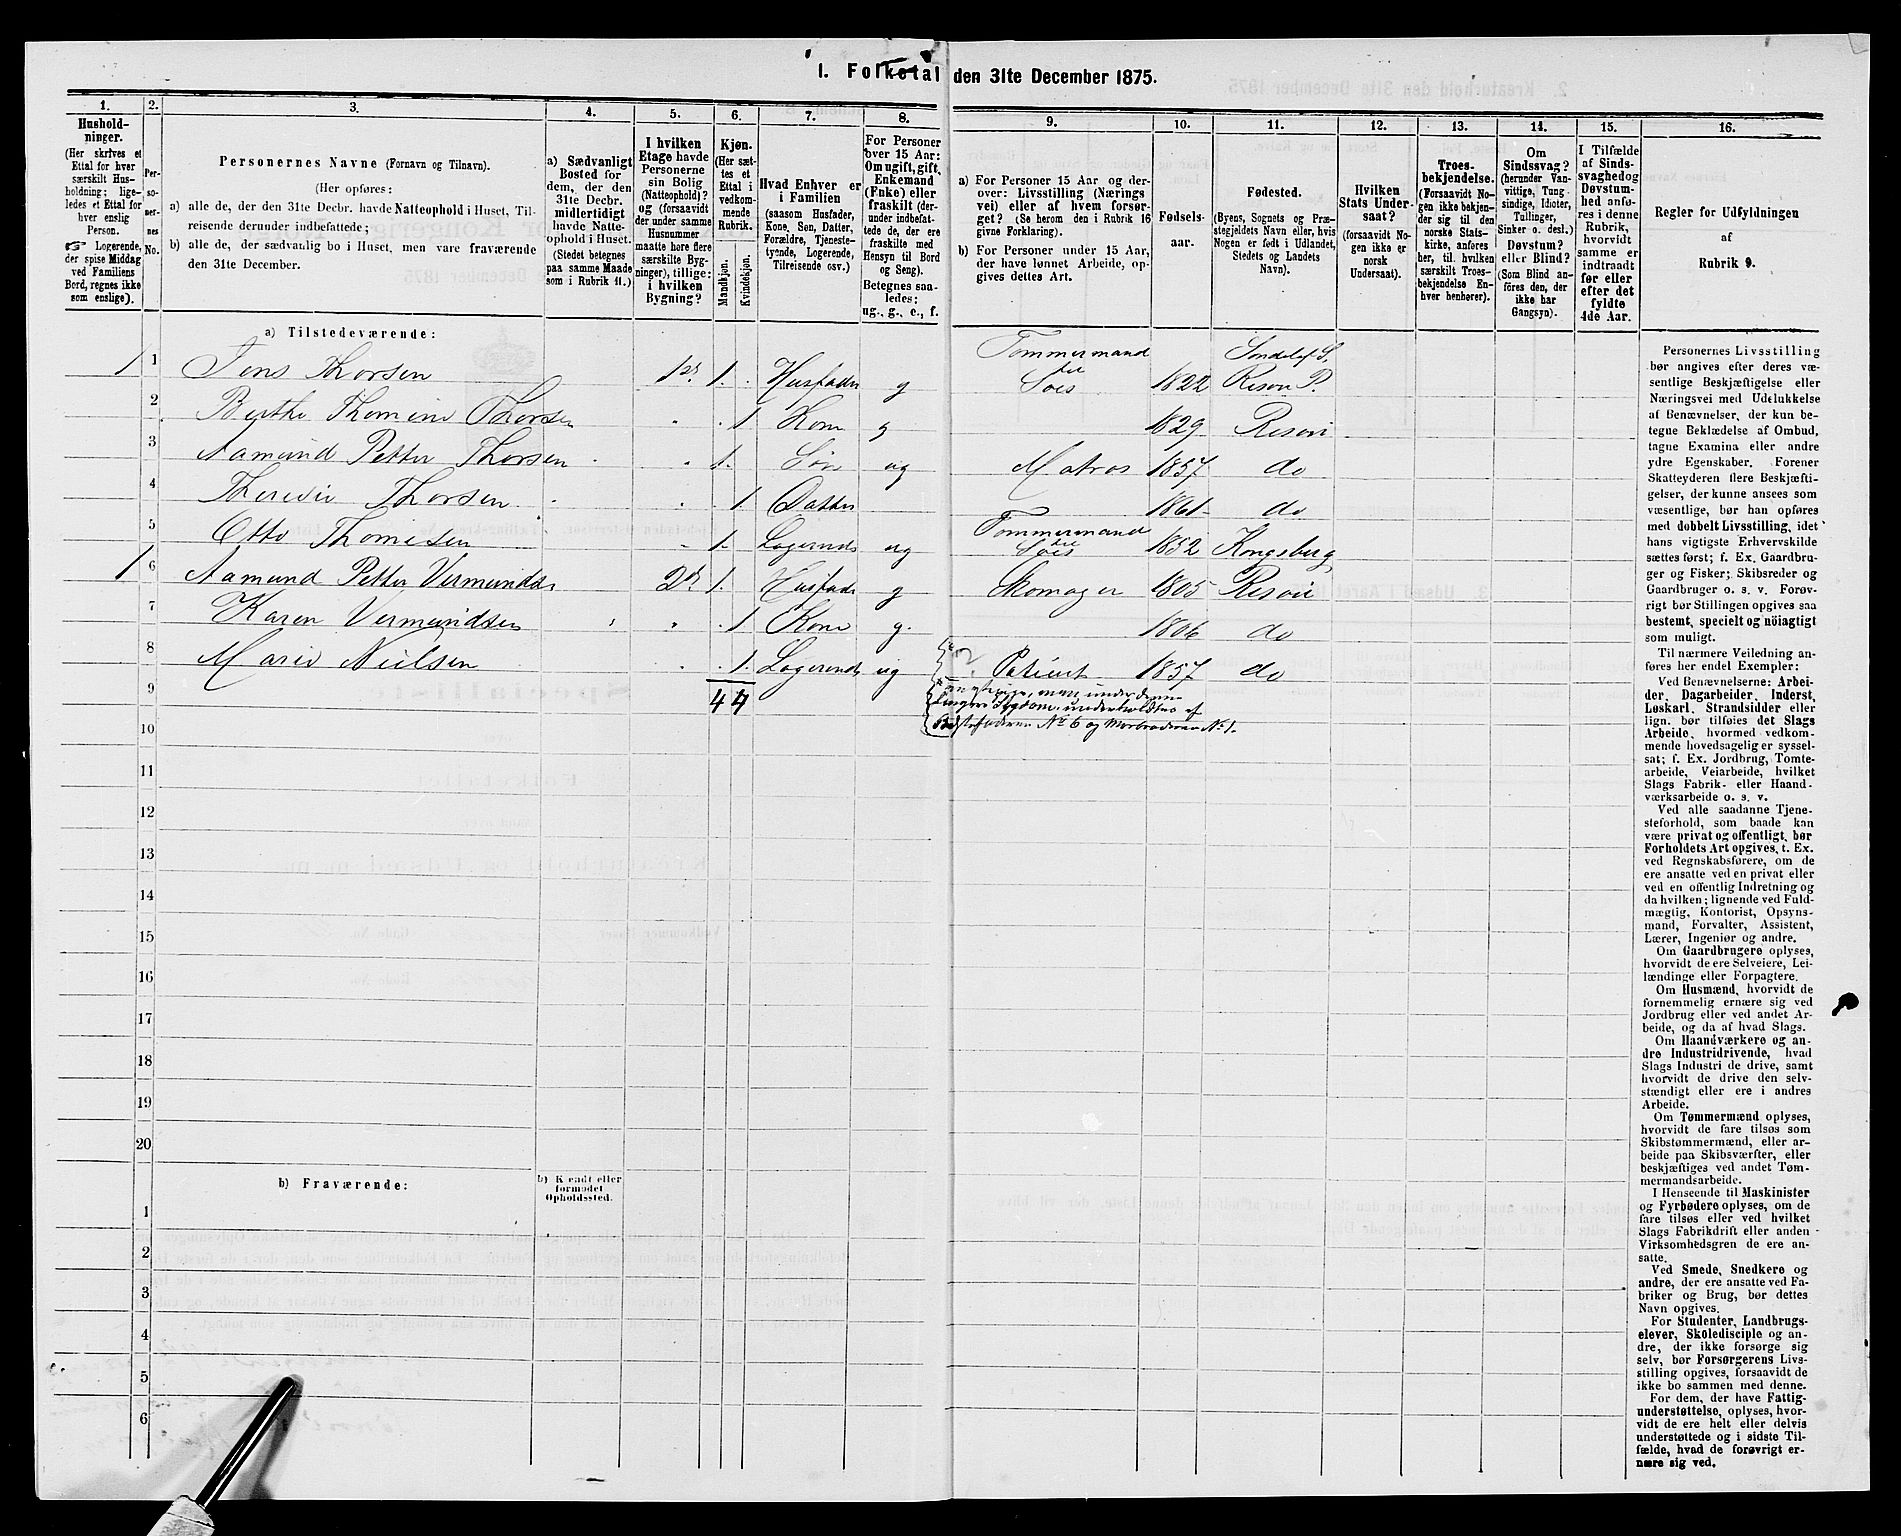 1. Folketal den 31te December 1875.
1.
2.
3.
4.
5.
6.
7.
8.
9.
10.
11.
12.
13.
14.
15.
16.
Hushold-
ninger.
(Her skrives et
Ettal for hver
særskilt Hus-
holdning; lige-
ledes et Ettal for
hver enslig
Person.
☞ Logerende,
der spise Middag
ved Familiens
Bord, regnes ikke
som enslige).
Per-
so-
ner-
nes
No.
Personernes Navne (Fornavn og Tilnavn).
(Her opføres:
a) alle de, der den 31te Decbr. havde Natteophold i Huset, Til-
reisende derunder indbefattede;
b) alle de, der sædvanlig bo i Huset, men vare fraværende
den 31te December.
a) Sædvanligt
Bosted for
dem, der den
31te Decbr.
midlertidigt
havde Natte-
ophold i Huset.
(Stedet betegnes
paa samme Maade
som i Rubrik 11.)
I hvilken
Etage havde
Personerne
sin Bolig
(Natteophold)?
og (forsaavidt
der under samme
Husnummer
maatte høre flere
særskilte Byg-
ninger), tillige:
i hvilken
Bygning?
Kjøn.
(Her sæt-
tes et
Ettal i
vedkom-
mende
Rubrik.
Mandkjøn.
Kvindekjøn.
Hvad Enhver er
i Familien
(saasom Husfader,
Kone, Søn, Datter,
Forældre, Tjeneste-
tyende, Logerende,
Tilreisende osv.)
For Personer
over 15 Aar:
Om ugift, gift,
Enkemand
(Enke) eller
fraskilt (der-
under indbefat-
tede de, der ere
fraskilte med
Hensyn til Bord
og Seng).
Betegnes saa-
ledes:
ug., g., e., f.
a) For Personer 15 Aar og der-
over: Livsstilling (Nærings
vei) eller af hvem forsør-
get? (Se herom den i Rubrik 16
givne Forklaring).
b) For Personer under 15 Aar,
der have lønnet Arbeide, op-
gives dettes Art.
Fødsels-
aar.
Fødested.
(Byens, Sognets og Præ-
stegjeldets Navn eller, hvis
Nogen er født i Udlandet,
Stedets og Landets
Navn).
Hvilken
Stats Under-
saat?
(forsaavidt No-
gen ikke er
norsk
Undersaat).
Troes-
bekjendelse.
(Forsaavidt No-
gen ikke bekjen-
der sig til den
norske Stats-
kirke, anføres
her, til hvilken
særskilt Troes-
bekjendelse En-
hver henhører).
Om
Sindssvag?
(herunder Van-
vittige, Tung
sindige, Idioter,
Tullinger,
Sinker o. desl.)
Døvstum?
eller Blind?
(Som Blind an-
føres den, der
ikke har
Gangsyn).
I Tilfælde
af Sinds-
svaghed og
Døvstum-
hed anfø-
res i denne
Rubrik,
hvorvidt
samme er
indtraadt
før eller
efter det
fyldte
4de Aar.
Regler for Udfyldningen
af
Rubrik 9.
a) Tilstedeværende:
1 1 Jens Thorsen 1st 1. Husfader g Tømmermand til Søes 1822 Søndeløf S. Risør P.
2 Berthe Thomine Thorsen 1 Kone g 1829 Risør
3 Aamund Petter Thorsen 1. Søn ug Matros 1857 do
4 Thorsen 1 Datter 1861 do
5 Otto Thomesen 1. Logerende ug Tømmermand til Søes 1852 Kongsberg
1 6 Aamund Petter Vermundsen 2d 1. Husfader g Skomager 1805 Risør
7 Karen Vermundsen 1 Kone g. 1806 do
8 Marie Nielsen 1. Logerende ug Patient 1857 do
9 4 4
men under denne
Sygdom underholdtes af
Bedstefaderen No 6 og Morbroderen No 1.
10
11
12
13
14
15
16
17
18
19
20
b) Fraværende:
b) Kjendt eller
formodet
Opholdssted.
1
2
3
4
5
6
Personernes Livsstilling
bør angives efter deres væ-
sentlige Beskjæftigelse eller
Næringsvei med Udelukkelse
af Benævnelser, der kun be-
tegne Beklædelse af Ombud,
tagne Examina eller andre
ydre Egenskaber. Forener
Skatteyderen flere Beskjæfti-
gelser, der kunne ansees som
væsentlige, bør han opføres
med dobbelt Livsstilling, idet
hans vigtigste Erhvervskilde
sættes først; f. Ex. Gaardbru-
ger og Fisker; Skibsreder og
Gaardbruger o. s. v. Forøv-
rigt bør Stillingen opgives saa
bestemt, specielt og nöiagtigt
som muligt.
Til nærmere Veiledning an-
føres her endel Exempler:
Ved Benævnelserne: Arbei-
der, Dagarbeider, Inderst,
Løskarl, Strandsidder eller
lign. bør tilføies det Slags
Arbeide, hvormed vedkom-
mende hovedsagelig er syssel-
sat; f. Ex. Jordbrug, Tomte-
arbeide, Veiarbeide, hvilket
Slags Fabrik- eller Haand-
værksarbeide o. s. v.
Ved alle saadanne Tjene-
steforhold, som baade kan
være privat og offentligt, bør
Forholdets Art opgives, t. Ex.
ved Regnskabsførere, om de
ere ansatte ved en privat eller
ved en offentlig Indretning og
da hvilken; lignende ved Fuld-
mægtig, Kontorist, Opsyns-
mand, Forvalter, Assistent,
Lærer, Ingeniør og andre.
Om Gaardbrugere oplyses,
hvorvidt de ere Selveiere, Lei-
lændinge eller Forpagtere.
Om Husmænd, hvorvidt de
fornemmelig ernære sig ved
Jordbrug eller ved andet Ar-
beide, og da af hvad Slags.
Om Haandværkere og an-
dre Industridrivende, hvad
Slags Industri de drive, samt
hvorvidt de drive den selv-
stændigt eller ere i andres
Arbeide.
Om Tømmermænd oplyses,
hvorvidt de fare tilsøs som
Skibstømmermænd, eller ar-
beide paa Skibsværfter, eller
beskjæftiges ved andet Tøm-
mermandsarbeide.
I Henseende til Maskinister
og Fyrbødere oplyses, om de
fare tilsøs eller ved hvilket
Slags Fabrikdrift eller anden
Virksomhedsgren de ere an-
satte.
Ved Smede, Snedkere og
andre, der ere ansatte ved Fa-
briker og Brug, bør dettes
Navn opgives.
For Studenter, Landbrugs-
elever, Skoledisciple og an-
dre, der ikke forsørge sig
selv, bør Forsørgerens Livs-
stilling opgives, forsaavidt de
ikke bo sammen med denne.
For dem, der have Fattig-
understøttelse, oplyses, hvor-
vidt de ere helt eller delvis
understøttede og i sidste Til-
fælde, hvad de forøvrigt er-
nære sig ved.